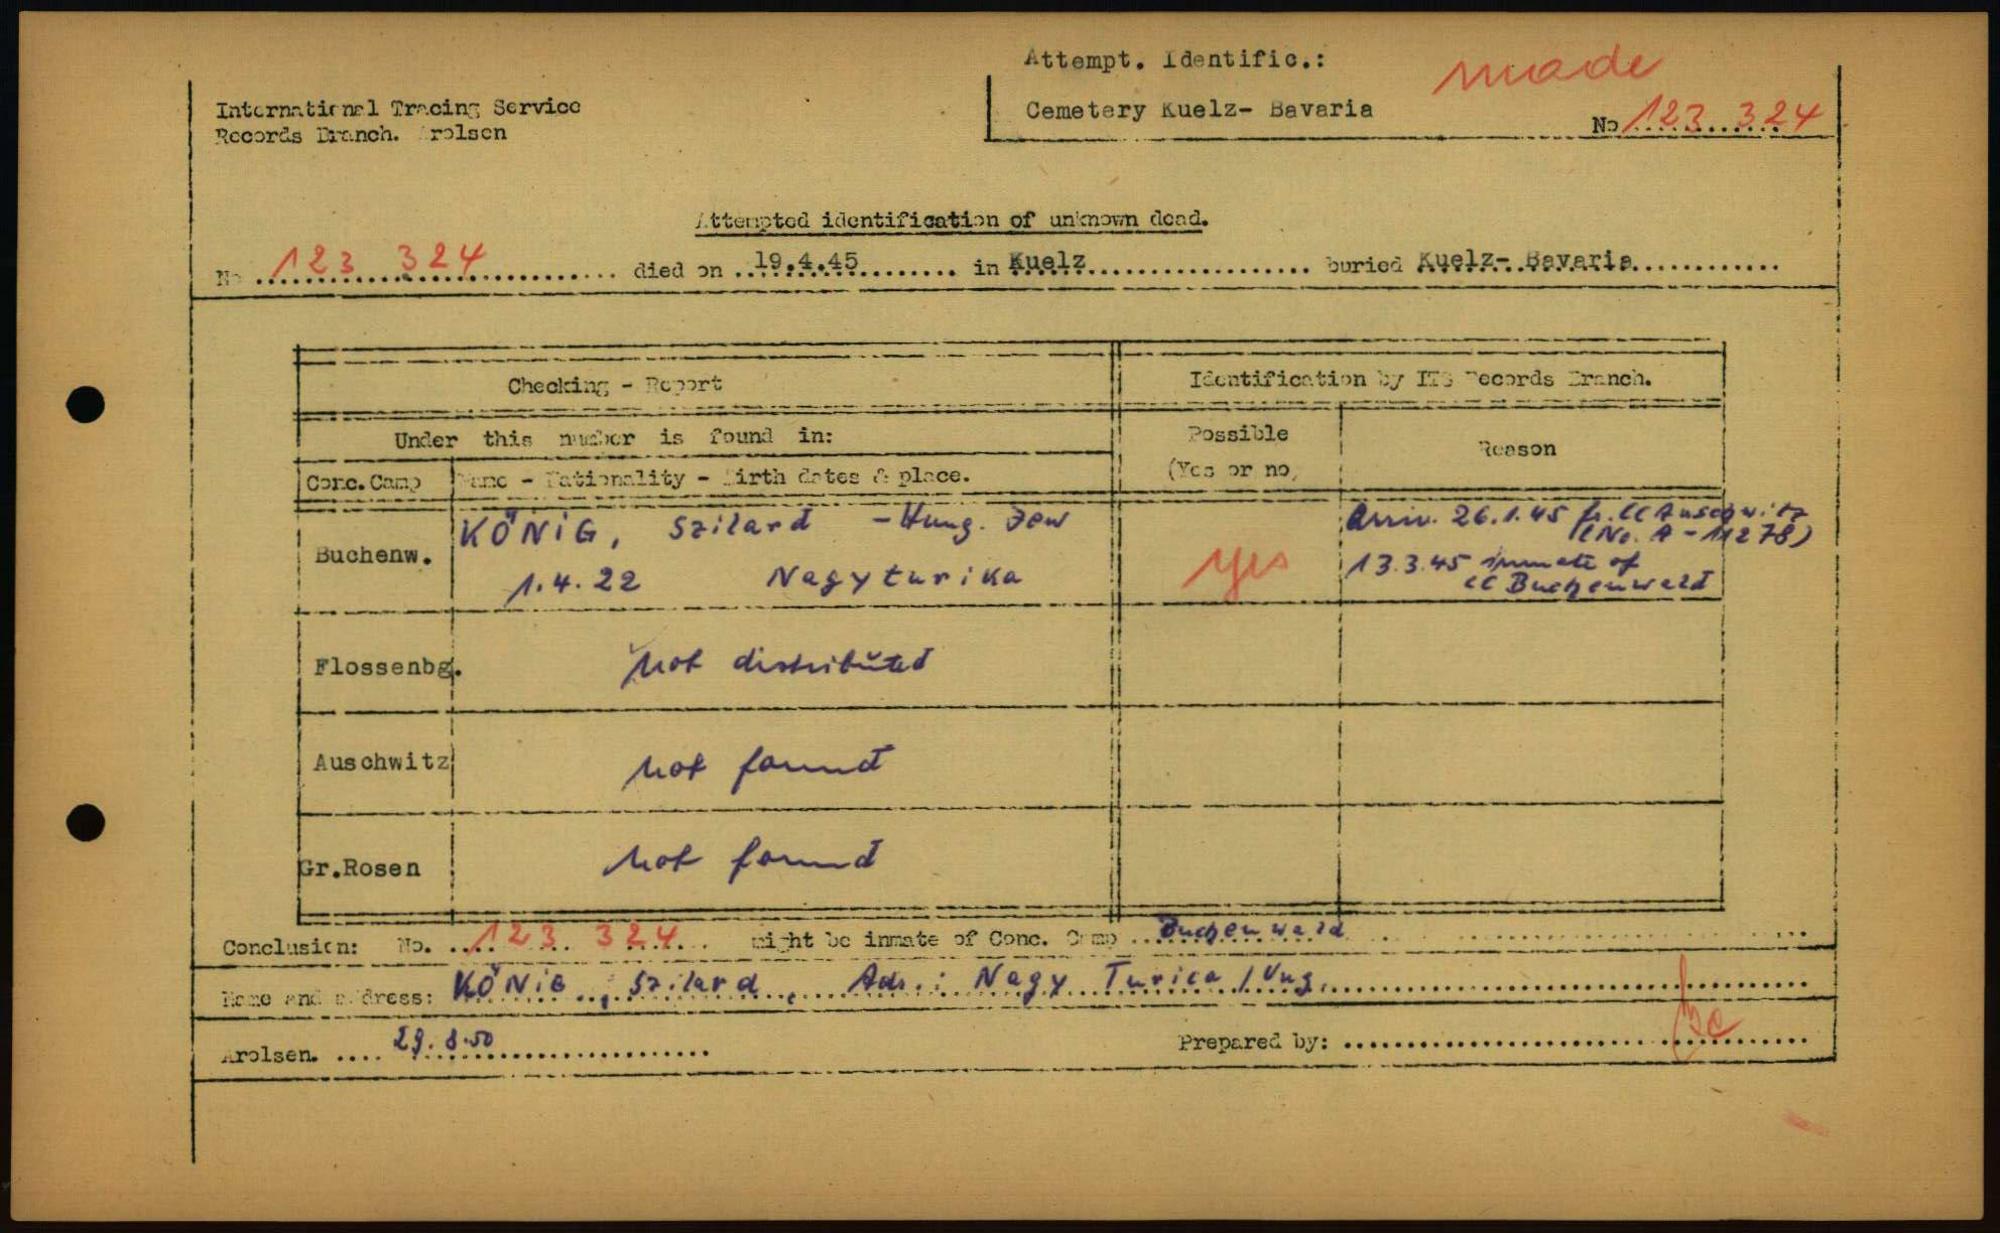 Attempt. Identific.: made
International Tracing Service
Cemetery Kuelz- Bavaria
No 123 324
Records Branch. Arolsen
Attempted identification of unknown dead.
No 123 324 died on 19.4.45 in Kuelz buried Kuelz- Bavaria
Checking - Report
Identification by ITS Records Branch.
Under this number is found in:
Possible
(Yes or no)
Reason
Conc.Camp Name - Nationality - Birth dates & place.
Buchenw.
KÖNIG, Szilard - Hung. Jew
1.4.22 Nagyturika
yes
Arriv. 26.1.45 fr. CC Auschwitz
(No. A - 11278)
13.3.45 inmate of
CC Buchenwald
Flossenbg. not distributed
Auschwitz not found
Gr.Rosen not found
Conclusion: No. 123 324 might be inmate of Conc. Camp Buchenwald
Name and address: KÖNIG, Szilard, Adr.: Nagy Turica / Ung.
Arolsen. 29.8.50 Prepared by: